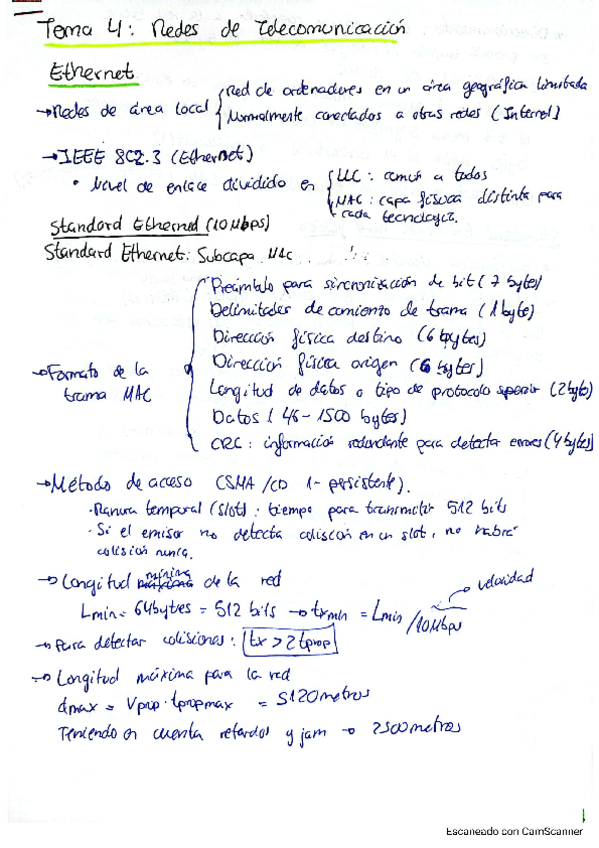 Tema 4: Redes de Telecomunicación
Ethernet
→Redes de área local { Red de ordenadores en un área geográfica limitada
Normalmente conectados a otras redes (Internet)
→IEEE 802.3 (Ethernet)
• Nivel de enlace dividido en { LLC: común a todos
MAC: capa física distinta para
cada tecnología.
Standard Ethernet (10Mbps)
Standard Ethernet: Subcapa MAC
→Formato de la trama MAC {
Preámbulo para sincronización de bit (7 bytes)
Delimitador de comienzo de trama (1 byte)
Dirección física destino (6 bytes)
Dirección física origen (6 bytes)
Longitud de datos o tipo de protocolo superior (2 byte)
Datos (46-1500 bytes)
CRC: información redundante para detectar errores (4 bytes)
→Método de acceso CSMA/CD 1-persistente).
· Ranura temporal (slot): tiempo para transmitir 512 bits
· Si el emisor no detecta colisión en un slot, no habrá
colisión nunca.
→Longitud mínima de la red
Lmin= 64bytes = 512 bits → txmin = Lmin/10Mbps → velocidad
→Para detectar colisiones: tx > 2tprop
→Longitud máxima para la red
dmax = Vprop·tpropmax = 5120metros
Teniendo en cuenta retardos y jam → 2500metros
1
Escaneado con CamScanner